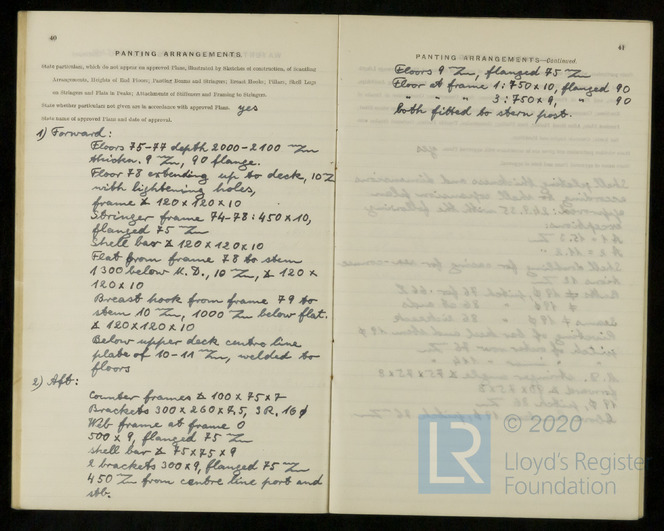 40
PANTING ARRANGEMENTS
State particulars, which do not appear on approved Plans, illustrated by Sketches of construction, of Scantling
Arrangements, Heights of End Floors; Panting Beams and Stringers; Breast Hooks; Pillars, Shell Lugs
on Stringers and Plate in Peaks; Attachments of Stiffeners and Framing to Stringers.
State whether particulars not given are in accordance with approved Plans. yes
State name of approved Plans and date of approval.
1) Forward:
Floors 75-77 depth 2000-2100 Zm
thickn. 9 Zm, 90 flange.
Floor 78 extending up to deck, 10 Z
with lightening holes,
frame ∆ 120 x 120 x 10
Stringer frame 74-78: 450 x 10,
flanged 75 Zm
Shell bar ∆ 120 x 120 x 10
Flat from frame 78 to stem
1300 below U.D., 10 Zm, ∆ 120 x
120 x 10
Breast hook from frame 79 to
stem 10 Zm, 1000 Zm below flat.
∆ 120 x 120 x 10
Below upper deck centre line
plate of 10-11 Zm, welded to
floors
2) Aft:
Counter frames ∆ 100 x 75 x 7
Brackets 300 x 260 x 7,5, 3R. 16 ϕ
Web frame at frame 0
500 x 9, flanged 75 Zm
shell bar ∆ 75 x 75 x 9
2 brackets 300 x 9, flanged 75 Zm
450 Zm from centre line port and
stb.
41
PANTING ARRANGEMENTS—Continued.
Floors 9 Zm, flanged 75 Zm
Floor at frame 1: 750 x 10, flanged 90
" " " 3: 750 x 9, " 90
both fitted to stern post.
LR
© 2020
Lloyd's Register
Foundation